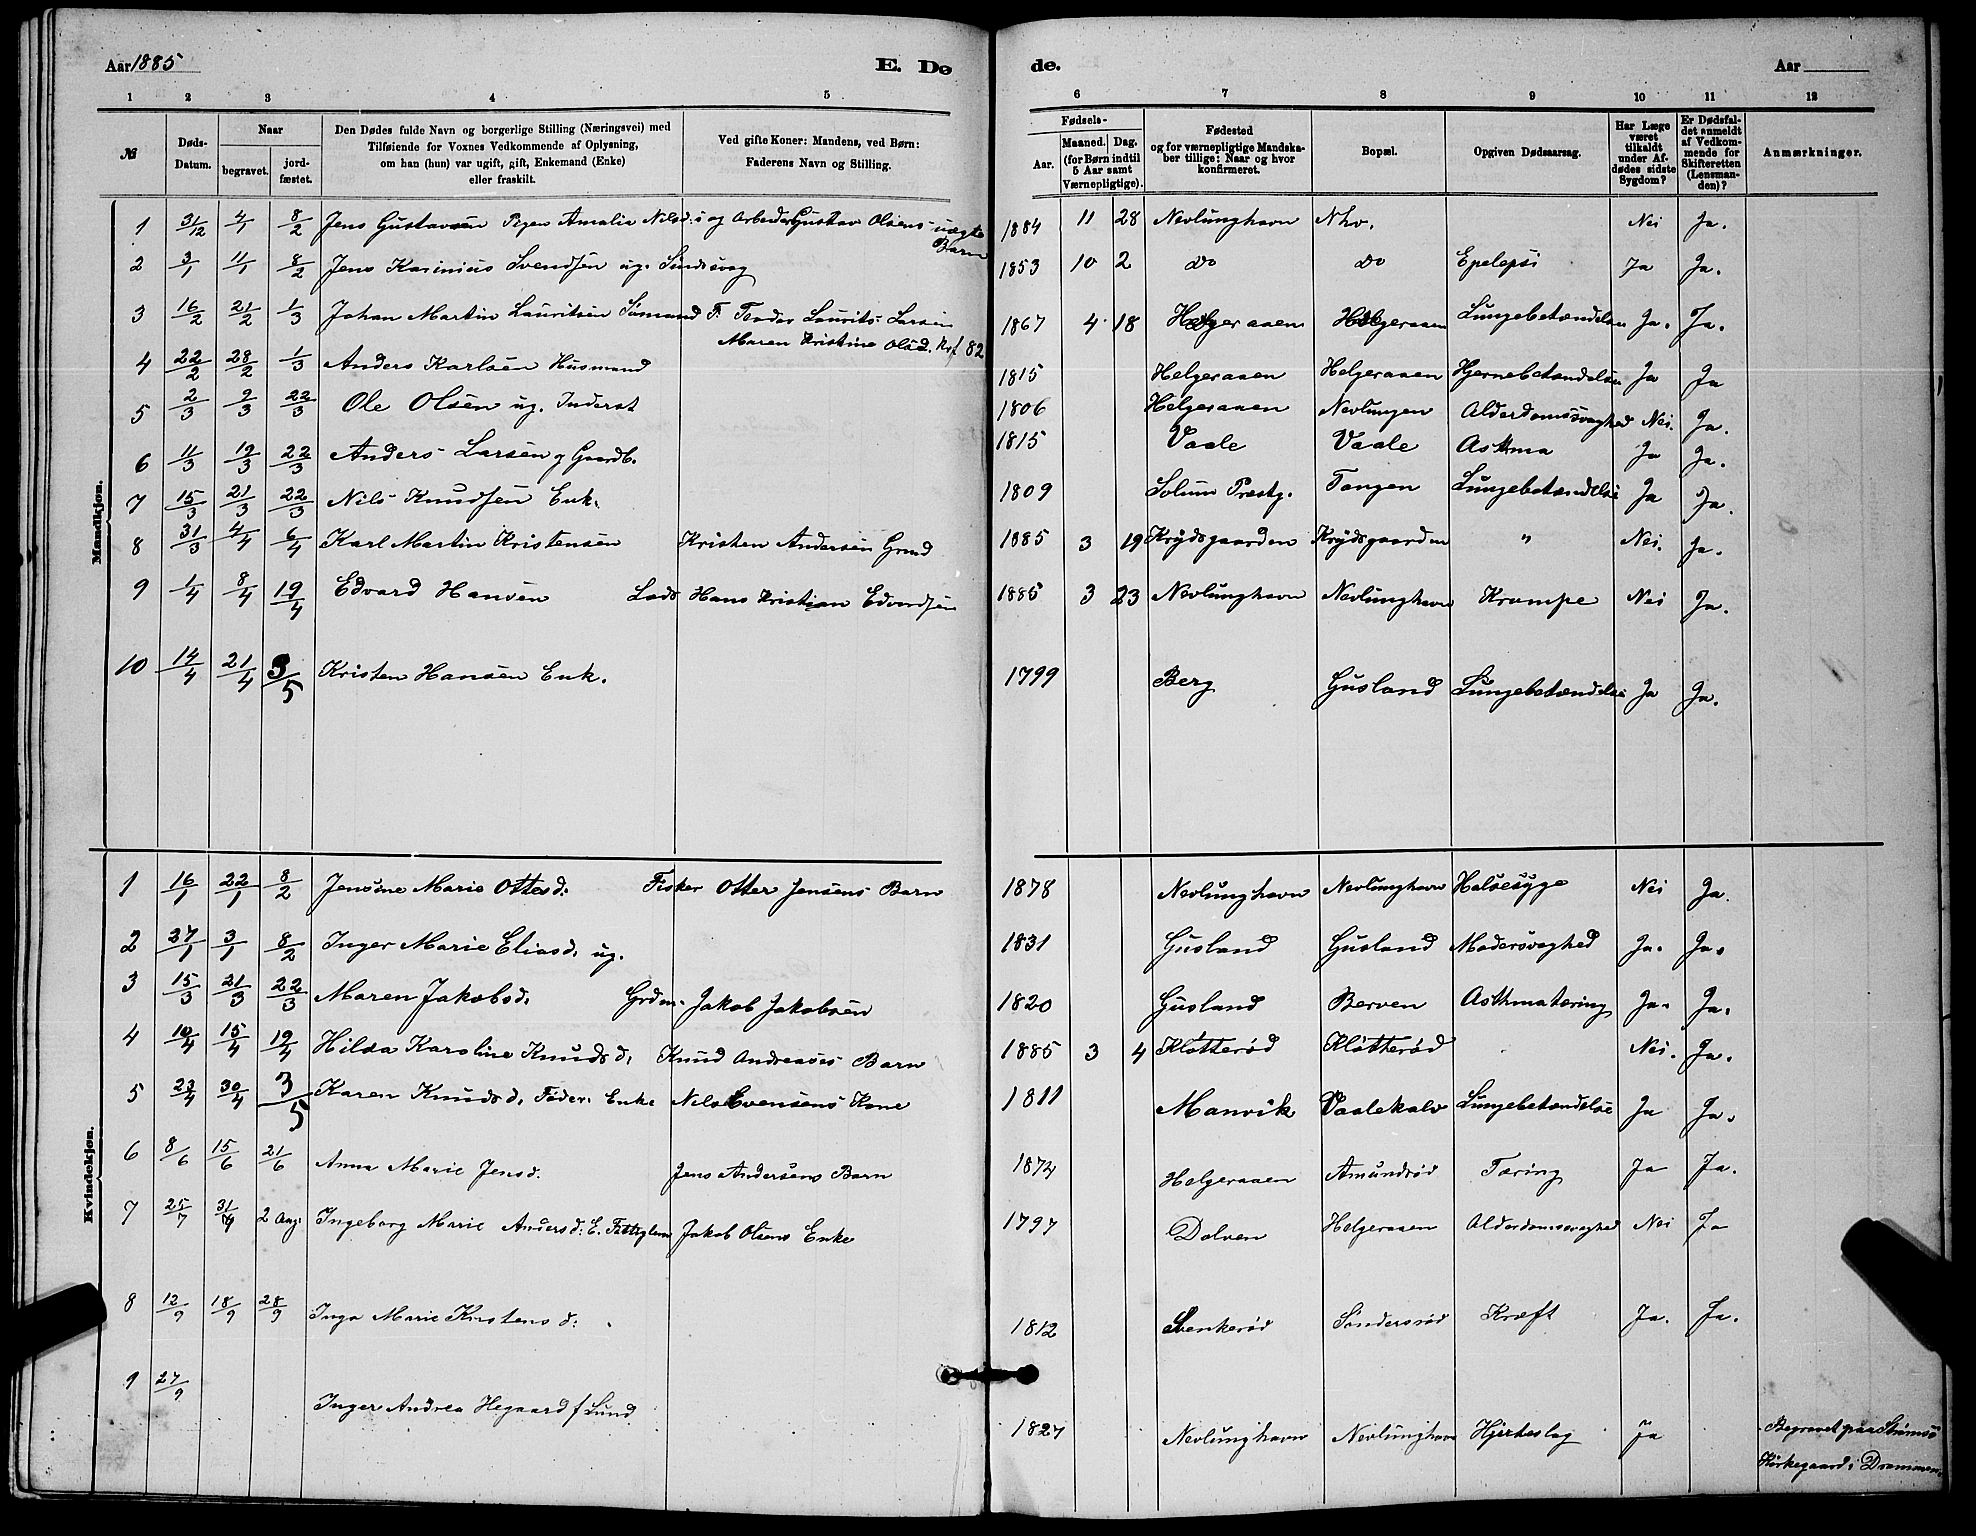 Aar 1885 E. Dø de. Aar
1 2 3 4 5 6 7 8 9 10 11 12
№
Døds-Datum.
Naar
begravet. jordfæstet.
Den Dødes fulde Navn og borgerlige Stilling (Næringsvei) med
Tilføiende for Voxnes Vedkommende af Oplysning,
om han (hun) var ugift, gift, Enkemand (Enke)
eller fraskilt.
Ved gifte Koner: Mandens, ved Børn:
Faderens Navn og Stilling.
Fødsels-
Aar. Maaned. Dag.
(for Børn indtil
5 Aar samt
Værnepligtige).
Fødested
og for værnepligtige Mandska-
ber tillige: Naar og hvor
konfirmeret.
Bopæl.
Opgiven Dødsaarsag.
Har Læge
været
tilkaldt
under Af-
dødes sidste
Sygdom?
Er Dødsfal-
det anmeldt
af Vedkom-
mende for
Skifteretten
(Lensman-
den)?
Anmærkninger.
Mandkjøn.
1 31/12 4/1 8/2 Jens Gustavsen Pigen Amalie Nilsd:s og Arbeider Gustav Olsens uægte Barn 1884 11 28 Nevlunghavn Nhv. Nei Ja.
2 3/1 11/1 8/2 Jens Karinius Svendsen ug. 1853 10 2 do do Epelepsi Ja Ja.
3 16/2 21/2 1/3 Johan Martin Lauritsen Sømand F. Laurits Larsen 1867 4 18 Helgeraaen Helgeraaen Lungebetændelse Ja. Ja.
Maren Kristine Olsd. Krf 82
4 22/2 28/2 1/3 Anders Karlsen Husmand 1815 Helgeraaen Helgeraaen Hjernebetændelse Ja Ja
5 2/3 9/3 22/3 Ole Olsen ug. Inderst 1806 Helgeraaen Nevlungen Alderdomssvaghed Nei. Ja.
6 11/3 19/3 22/3 Anders Larsen g Gaardb. 1815 Vaale Vaale Asthma Ja Ja.
7 15/3 21/3 22/3 Nils Knudsen Enk. 1809 Solum Præstg. Tangen Lungebetændelse Ja Ja.
8 31/3 4/4 6/4 Karl Martin Kristensen Kristen Andersen Grmd 1885 3 19 Krydsgaarden Krydsgaarden " Nei. Ja.
9 1/4 8/4 19/4 Edvard Hansen Lods Hans Kristian Edvardsen 1885 3 23 Nevlunghavn Nevlunghavn Krampe Nei Ja.
10 14/4 21/4 3/5 Kristen Hansen Enk. 1799 Berg Gusland Lungebetændelse Ja Ja.
Kvindekjøn.
1 16/1 22/1 8/2 Jensine Marie Ottesd. Fisker Otter Jensens Barn 1878 Nevlunghavn Nevlunghavn Halsesyge Nei Ja.
2 27/1 3/1 8/2 Inger Marie Eliasd. ug. 1831 Gusland Gusland Modersvaghed Ja. Ja.
3 15/3 21/3 22/3 Maren Jakobsd. Grdm. Jakob Jakobsen 1820 Gusland Berven Asthmatæring Ja. Ja.
4 10/4 15/4 19/4 Hilda Karoline Knudsd. Knud Andreases Barn 1885 3 4 Kløtterød Kløtterød Nei. Ja.
5 23/4 30/4 3/5 Karen Knudsd. Føder. Enke Nils Evensens Kone 1811 Manvik Vaalekalv Lungebetændelse Ja Ja.
6 8/6 15/6 21/6 Anna Marie Jensd. Jens Andersens Barn 1874 Helgeraaen Amundrød Tæring Ja Ja.
7 25/7 31/7 2 Aug. Ingeborg Marie Andersd: E. Fattiglem Jakob Olsens Enke 1797 Dolven Helgeraaen Alderdomssvaghed Nei Ja
8 12/9 18/9 28/9 Inga Marie Kristensd. 1812 Svenkerød Søndersrød Kræft Ja. Ja.
9 27/9 Inger Andrea Hegaard f Lund 1827 Nevlunghavn Nevlunghavn Hjerteslag Ja Begravet paa Strømsø
Kirkegaard i Drammen.